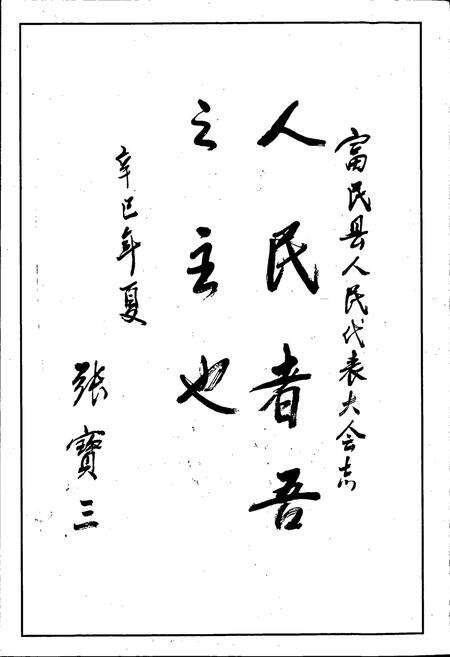 富民县人民代表大会志
人民者吾
之主也
辛巳年夏
張寶三